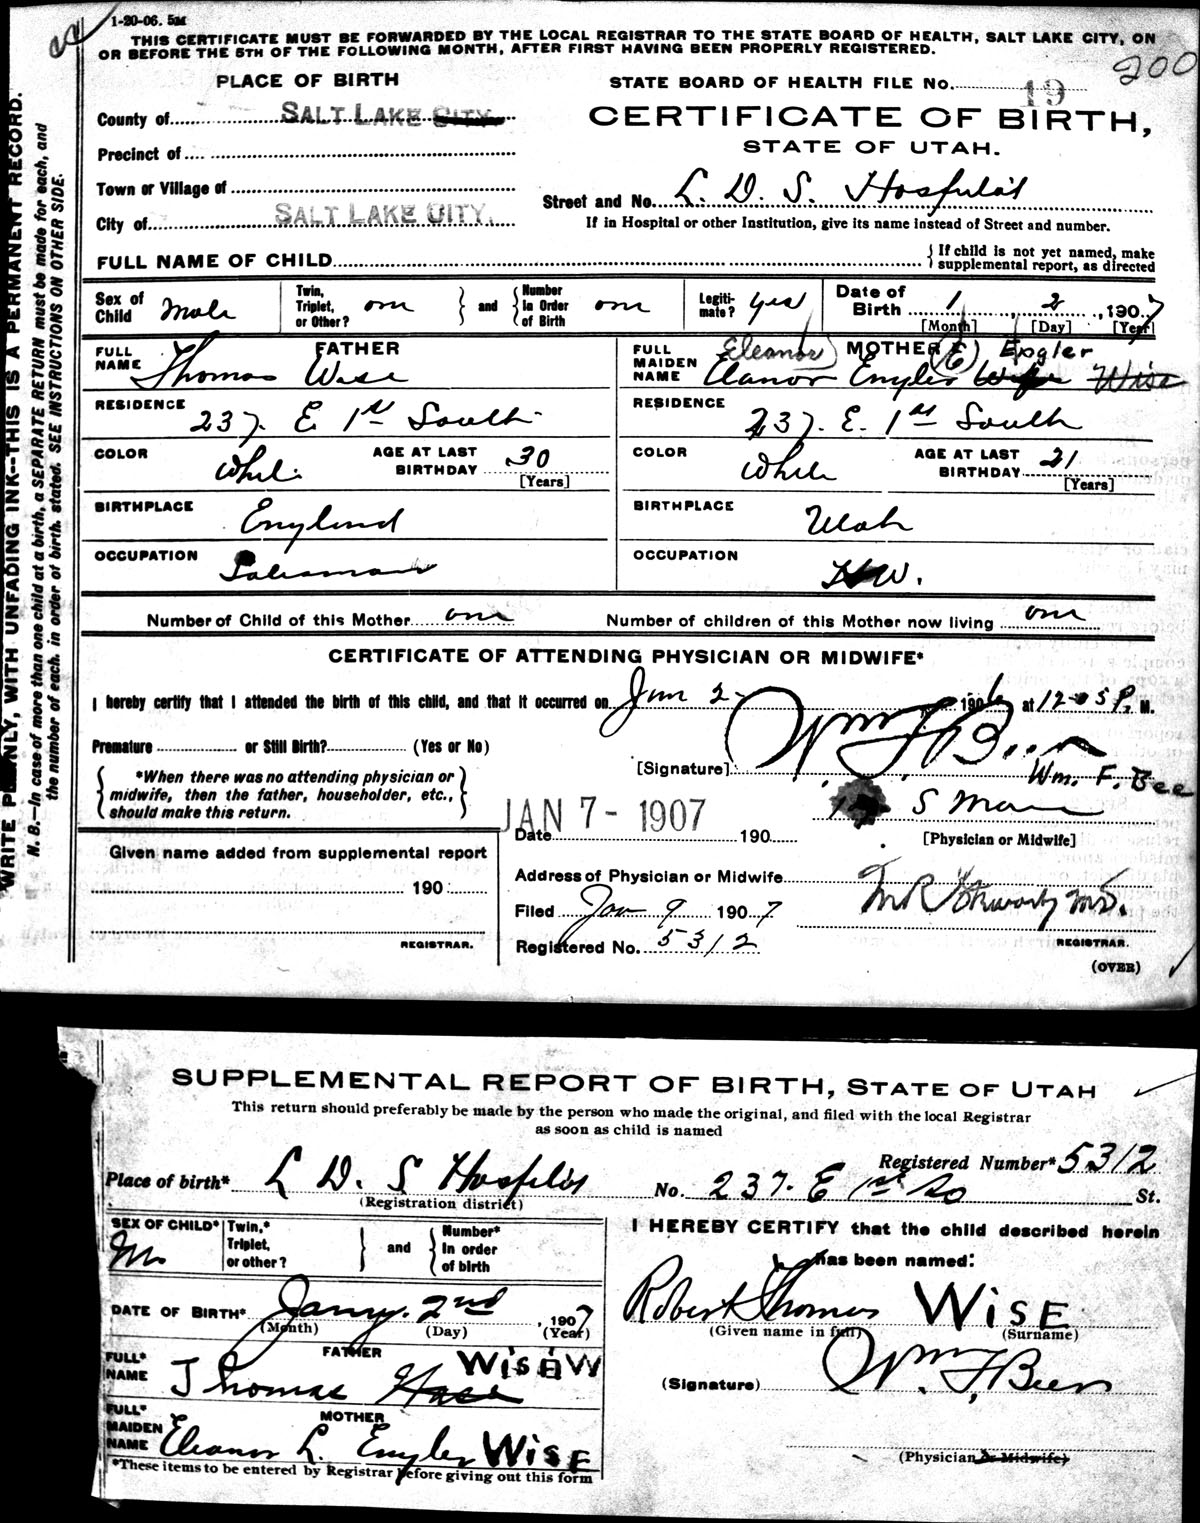 1-20-06. 5M
THIS CERTIFICATE MUST BE FORWARDED BY THE LOCAL REGISTRAR TO THE STATE BOARD OF HEALTH, SALT LAKE CITY, ON
OR BEFORE THE 5TH OF THE FOLLOWING MONTH, AFTER FIRST HAVING BEEN PROPERLY REGISTERED.
200
PLACE OF BIRTH
STATE BOARD OF HEALTH FILE No. 19
County of SALT LAKE CITY
CERTIFICATE OF BIRTH,
STATE OF UTAH.
Precinct of
Town or Village of
Street and No. L. D. S. Hospital
City of SALT LAKE CITY.
If in Hospital or other Institution, give its name instead of Street and number.
FULL NAME OF CHILD
{ If child is not yet named, make
supplemental report, as directed
Sex of Child Male
Twin, Triplet, or Other? one } and { Number In Order of Birth one
Legitimate? yes
Date of Birth 1 2, 1907
[Month] [Day] [Year]
FATHER
FULL NAME Thomas Wise
RESIDENCE 237. E 1st South
COLOR White AGE AT LAST BIRTHDAY 30
[Years]
BIRTHPLACE England
OCCUPATION Salesman
MOTHER
Eleanor (E) Engler
FULL MAIDEN NAME Elanor Engler Wise
RESIDENCE 237. E. 1st South
COLOR White AGE AT LAST BIRTHDAY 21
[Years]
BIRTHPLACE Utah
OCCUPATION H W.
Number of Child of this Mother one Number of children of this Mother now living one
CERTIFICATE OF ATTENDING PHYSICIAN OR MIDWIFE*
I hereby certify that I attended the birth of this child, and that it occurred on Jan 2- 1906 at 12-05 P. M.
Premature or Still Birth? (Yes or No)
[Signature] Wm F Beer
Wm. F. Bee
{ *When there was no attending physician or
midwife, then the father, householder, etc.,
should make this return. }
JAN 7 - 1907
Date 190
S Main
[Physician or Midwife]
Given name added from supplemental report
190
REGISTRAR.
Address of Physician or Midwife
Filed Jan 9 1907
M R Stewart M.D.
REGISTRAR.
Registered No. 5312
(OVER)
WRITE PLAINLY, WITH UNFADING INK--THIS IS A PERMANENT RECORD.
N. B.—In case of more than one child at a birth, a SEPARATE RETURN must be made for each, and
the number of each, in order of birth, stated. SEE INSTRUCTIONS ON OTHER SIDE.
SUPPLEMENTAL REPORT OF BIRTH, STATE OF UTAH
This return should preferably be made by the person who made the original, and filed with the local Registrar
as soon as child is named
Registered Number* 5312
Place of birth* L D. S Hospital No. 237. E 1st So St.
(Registration district)
SEX OF CHILD* M
Twin,* Triplet, or other? } and { Number* In order of birth
I HEREBY CERTIFY that the child described herein
has been named:
DATE OF BIRTH* Jany. 2nd, 1907
(Month) (Day) (Year)
Robert Thomas WISE
(Given name in full) (Surname)
FATHER
FULL* NAME Thomas WISE W
(Signature) Wm. F. Beer
MOTHER
FULL* MAIDEN NAME Eleanor L. Engler WISE
(Physician or Midwife)
*These items to be entered by Registrar before giving out this form